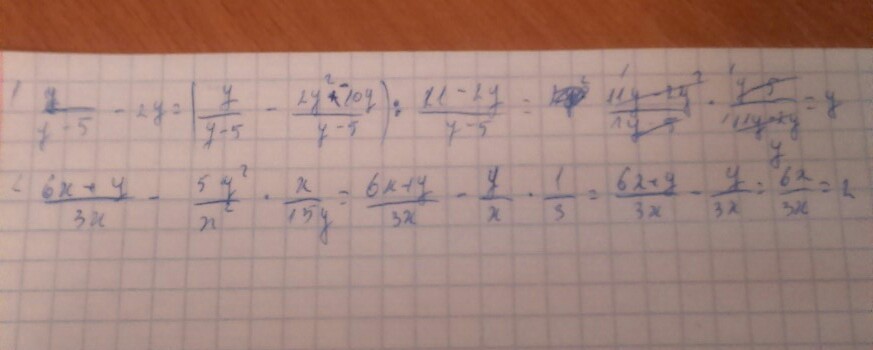 1 y/(y-5) - 2y = (y/(y-5) - (2y²-10y)/(y-5)) : (11-2y)/(y-5) = (11y-2y²)/(y-5) · (y-5)/(11-2y) = y
2 (6x+y)/3x - 5y²/x² · x/15y = (6x+y)/3x - y/x · 1/3 = (6x+y)/3x - y/3x = 6x/3x = 2